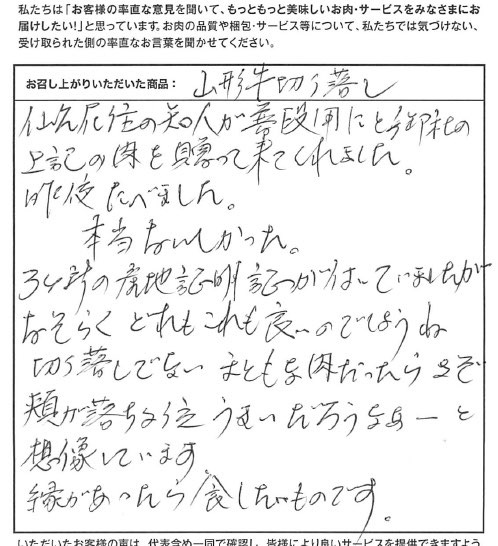 私たちは「お客様の率直な意見を聞いて、もっともっと美味しいお肉・サービスをみなさまにお
届けしたい!」と思っています。お肉の品質や梱包・サービス等について、私たちでは気づけない、
受け取られた側の率直なお言葉を聞かせてください。
お召し上がりいただいた商品: 山形牛切り落し
仙台在住の知人が普段用にと御社の
上記の肉を贈って来てくれました。
昨夜たべました。
本当おいしかった。
3ヶ所の産地証明証がはいっていましたが
おそらくどれもこれも良いのでしょうね
切り落しでないまともな肉だったらさぞ
頬が落ちる位うまいだろうなぁーと
想像しています
縁があったら食したいものです。
いただいたお客様の声は、代表含め一同で確認し、皆様により良いサービスを提供できますよう